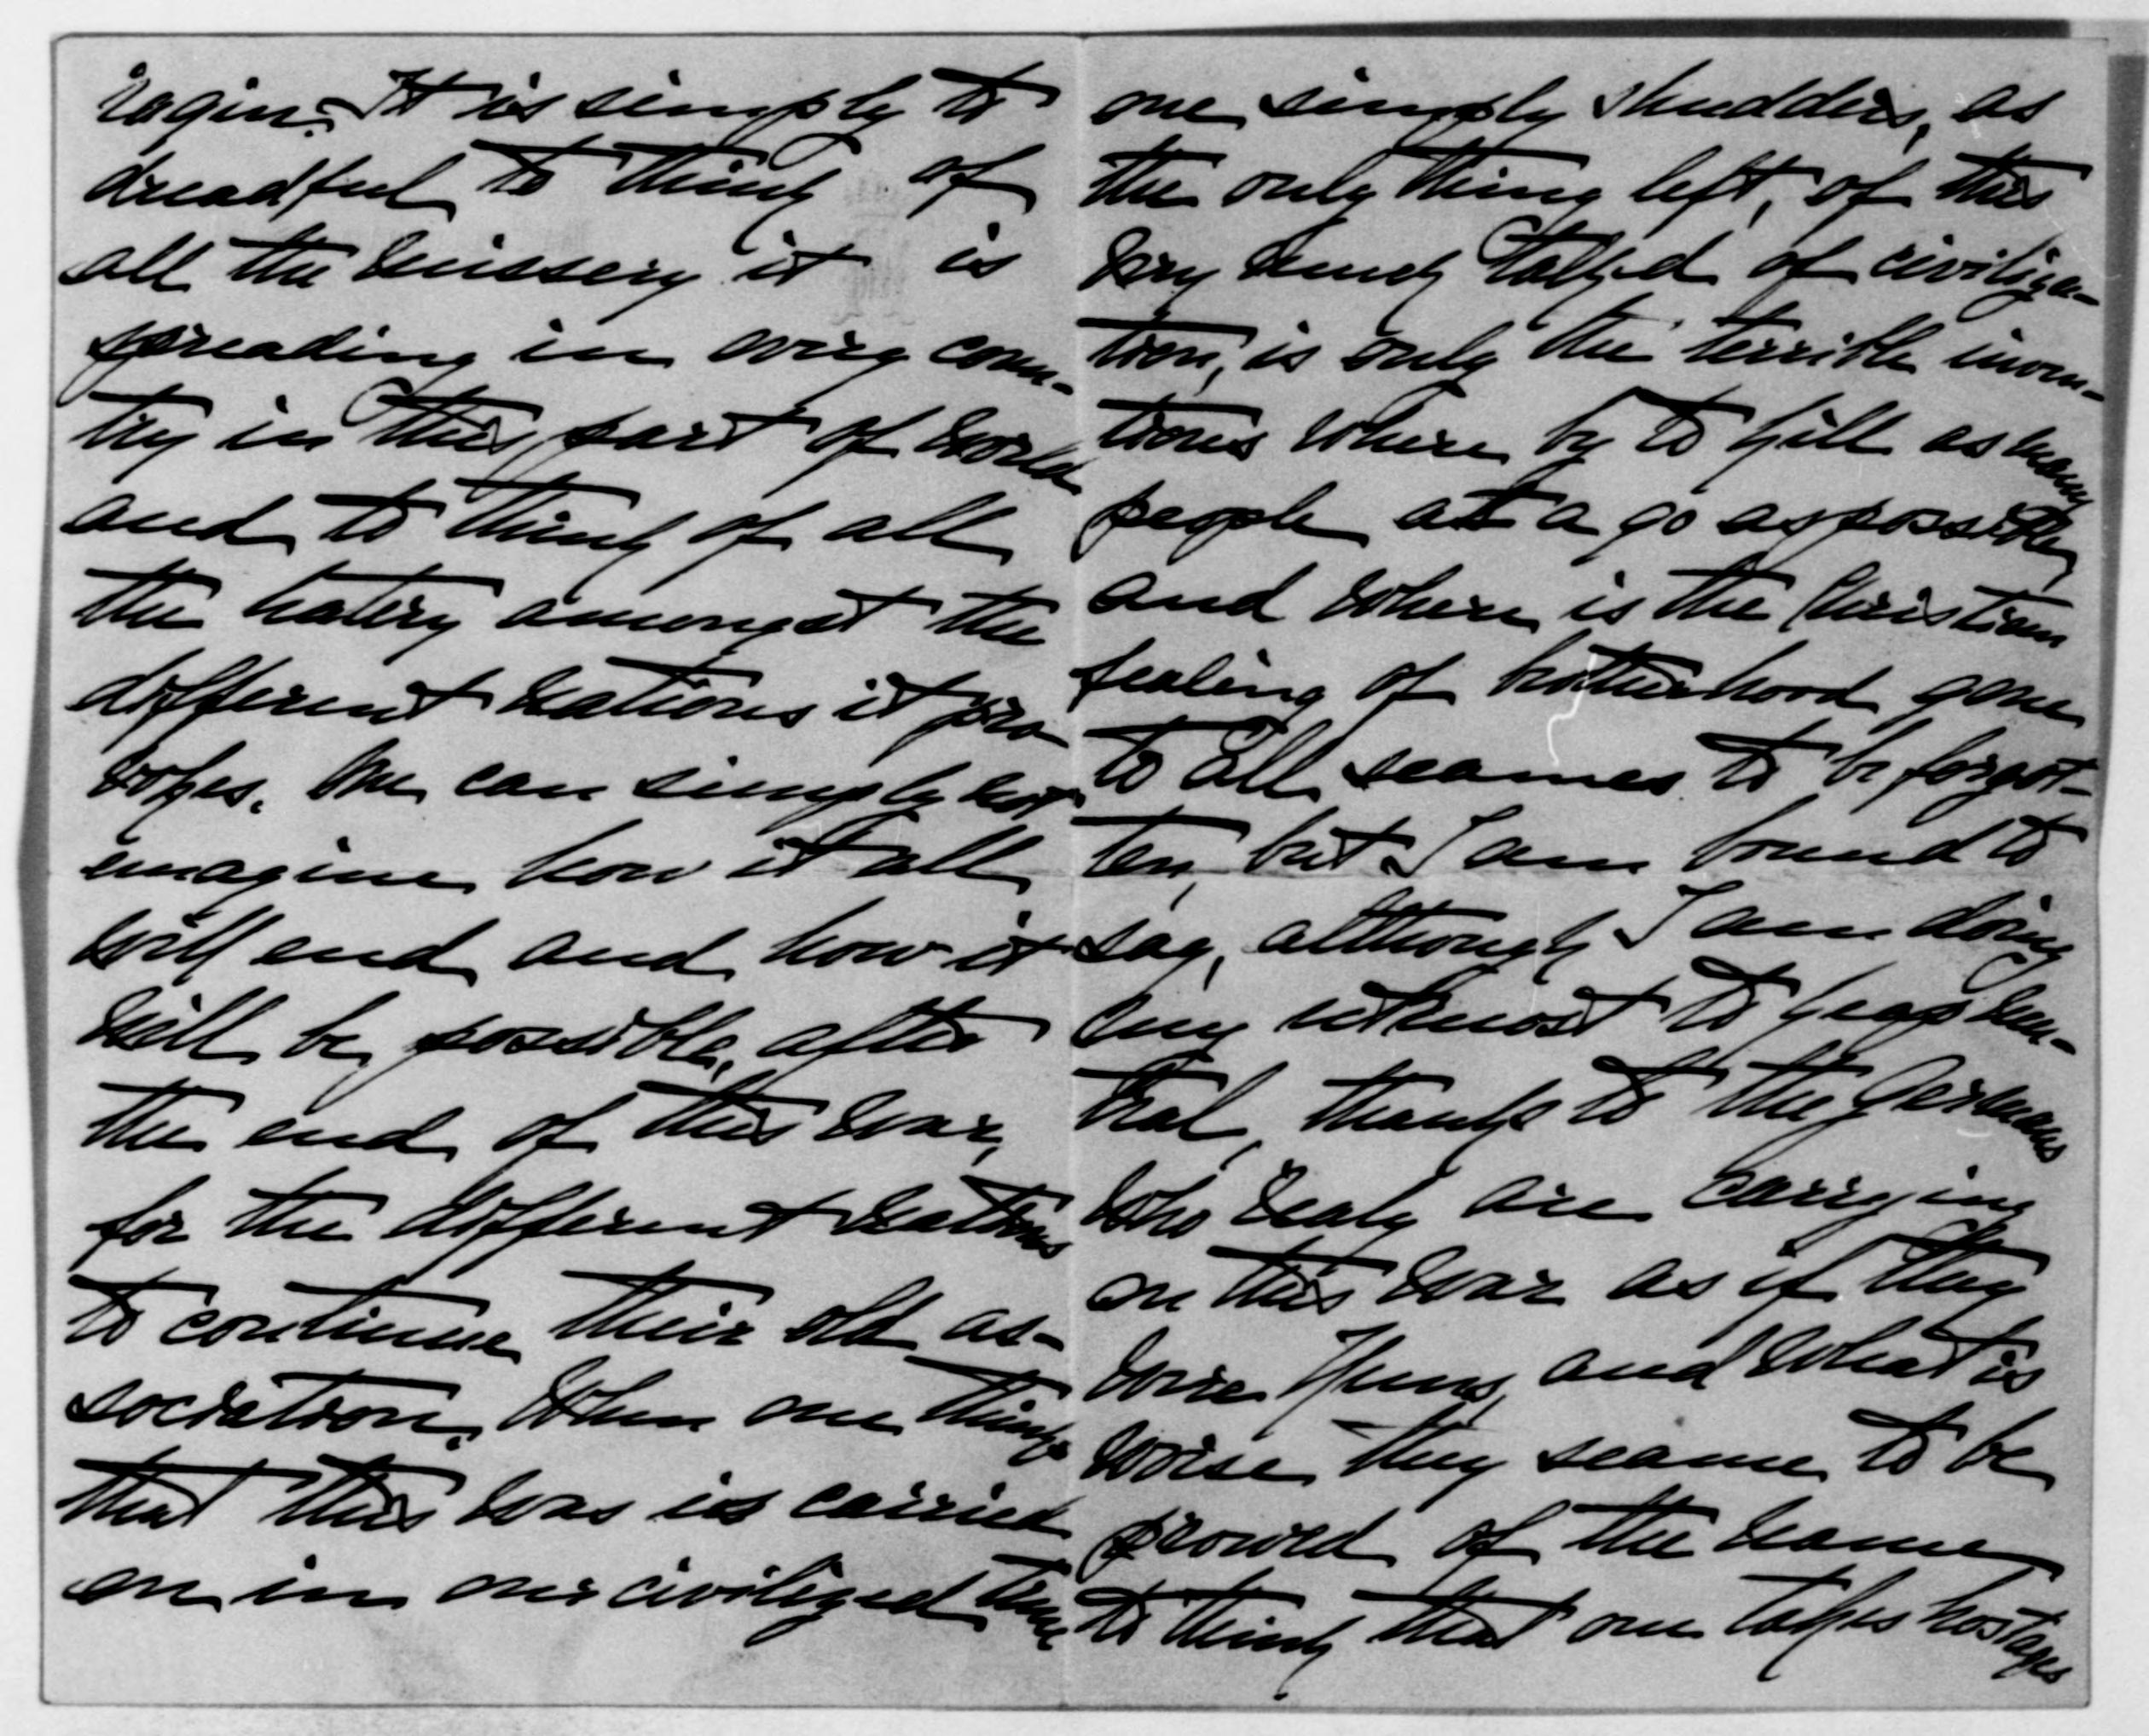 ragin. It is simply to
dreadful to think of
all the missery it is
spreading in every coun-
try in this part of world
and to think of all
the hatery amongst the
different nations it pro-
vokes. One can simply not
emagine how it all
will end and how it
will be possible, after
the end of this war,
for the different nations
to continue their old as-
sociation. When one thinks
that this was is carried
on in our civilized time
one simply shudders, as
the only thing left, of this
very much talked of civiliza-
tion, is only the terrible inven-
tions where by to kill as many
people at a go as possible,
and where is the Christian
fealing of brotherhood gone
to all seames to be forgot-
ten, but I am bound to
say, although I am doing
my utmost to keap neu-
tral, thanks to the Germans
who realy are carrying
on this war as if they
were Huns, and what is
worse they seame to be
prowd of the name
to think that one takes hostages